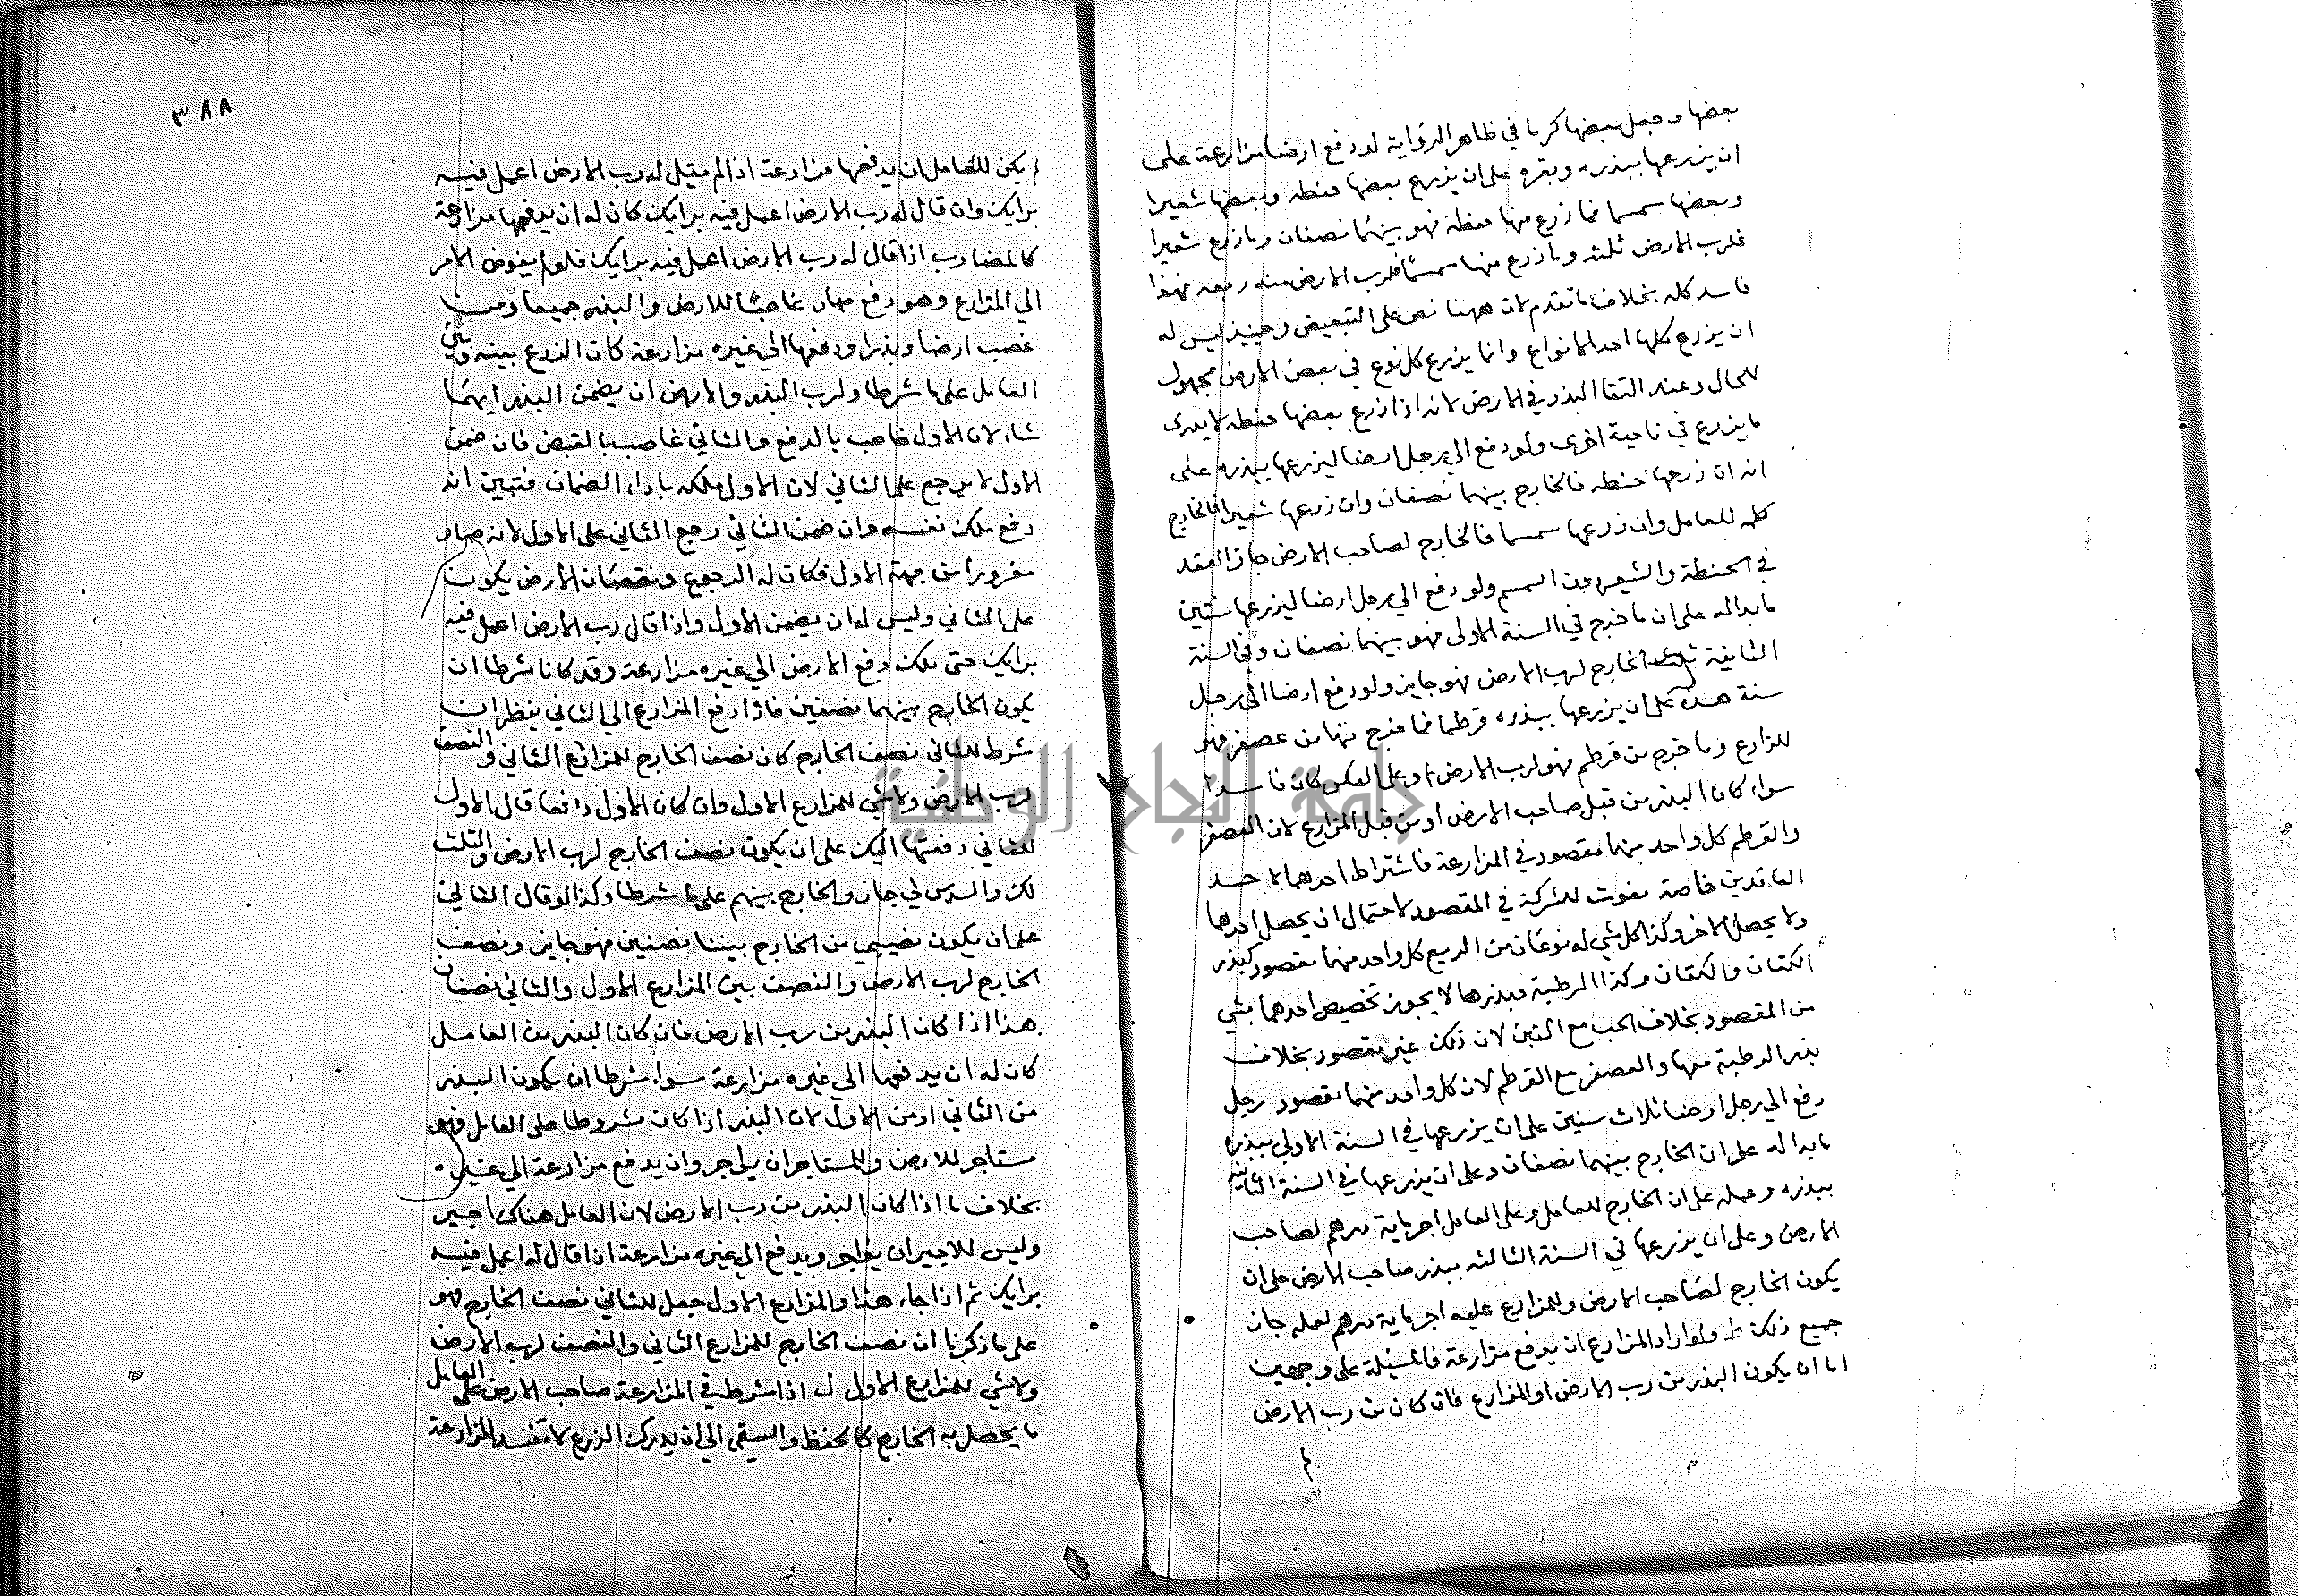 بعضها وجعل بعضها كرما في ظاهر الرواية لو دفع ارضا مزارعة على
ان يزرعها ببذره وبقره على ان يزرع بعضها حنطه وبعضها شعيرا
وبعضها سمسما فما زرع منها حنطة فهو بينهما نصفان وما زرع شعيرا
فلرب الارض ثلثه وما زرع منها سمسما فلرب الارض منه ربعه فهذا
فاسد كله بخلاف ما تقدم لان ههنا نص على التبعيض وحينيذ ليس له
ان يزرع كلها احد الانواع وانما يزرع كل نوع في بعض الارض مجهول
للحال وعند القا البذر في الارض لانه اذا زرع بعضها حنطه لا يدرى
ما يزرع في ناحية اخرى ولو دفع الي رجل ارضا ليزرعها ببذره على
انه ان زرعها حنطه فالخارج بينهما نصفان وان زرعها شعيرا فالخارج
كله للعامل وان زرعها سمسما فالخارج لصاحب الارض جاز العقد
في الحنطة والشعير دون السمسم ولو دفع الي رجل ارضا ليزرعها سنتين
ما بدا له على ان ما خرج في السنة الاولى فهو بينهما نصفان وفي السنة
الثانية ثلث الخارج لرب الارض فهو جايز ولو دفع ارضا الى رجل
سنة هذه على ان يزرعها ببذره قرطما فما خرج منها من عصفر فهو
للزارع وما خرج من قرطم فهو لرب الارض او على العكس كان فاسدا
سواء كان البذر من قبل صاحب الارض او من قبل المزارع لان العصفر
والقرطم كل واحد منهما مقصود في المزارعة فاشتراط احدهما لاحد
العاقدين خاصة مفوت للشركة في المقصود لاحتمال ان يحصل احدها
ولا يحصل الاخر وكذا كل شي له نوعان من الريع كل واحد منهما مقصود كبذر
الكتان والكتان وكذا الرطبة وبذرها لا يجوز تخصيص احدهما بشي
من المقصود بخلاف الحب مع التبن لان ذلك غير مقصود بخلاف
بذر الرطبة معها والعصفر مع القرطم لان كل واحد منهما مقصود رجل
دفع الي رجل ارضا ثلاث سنين على ان يزرعها في السنة الاولي ببذره
ما بدا له على ان الخارج بينهما نصفان وعلى ان يزرعها في السنة الثانية
ببذره وعمله على ان الخارج للعامل وعلى العامل اجر ماية درهم لصاحب
الارض وعلى ان يزرعها في السنة الثالثه ببذر صاحب الارض على ان
يكون الخارج لصاحب الارض وللمزارع عليه اجر ماية درهم لعمله جاز
جميع ذلك ط ولو اراد المزارع ان يدفع مزارعة فالمسيلة على وجهين
اما ان يكون البذر من رب الارض او المزارع فان كان من رب الارض
لم
٣٨٨
لم يكن للعامل ان يدفعها مزارعة اذا لم يقل له رب الارض اعمل فيه
برايك وان قال له رب الارض اعمل فيه برايك كان له ان يدفعها مزارعة
كالمضارب اذا قال له رب الارض اعمل فيه برايك فلو لم يفوض الامر
الي المزارع وهو دفع صار غاصبا للارض والبذر جميعا ومن
غصب ارضا وبذرا ودفعها الي غيره مزارعة كان الزرع بينه وبين
العامل على ما شرطا ولرب البذر والارض ان يضمن البذر ايهما
شاء لان الاول غاصب بالدفع والثاني غاصب بالقبض فان ضمن
الاول لا يرجع على الثاني لان الاول ملكه باداء الضمان فتبين انه
دفع ملك نفسه وان ضمن الثاني رجع الثاني على الاول لانه صار
مغرورا من جهة الاول فكان له الرجوع ونقصان الارض يكون
على الثاني وليس له ان يضمن الاول واذا قال رب الارض اعمل فيه
برايك حتى ملك دفع الارض الي غيره مزارعة وقد كانا شرطا ان
يكون الخارج بينهما نصفين فاذا دفع المزارع الي الثاني ينظر ان
شرط للثاني نصف الخارج كان نصف الخارج للمزارع الثاني والنصف
لرب الارض ولا شي للمزارع الاول وان كان الاول دافعا قال الاول
للثاني دفعتها اليك على ان يكون نصف الخارج لرب الارض والثلث
لك والسدس لي جاز والخارج بينهم على ما شرطا وكذا لو قال الثاني
على ان يكون نصيبي من الخارج بيننا نصفين فهو جايز ونصف
الخارج لرب الارض والنصف بين المزارع الاول والثاني نصفان
هذا اذا كان البذر من رب الارض فان كان البذر من العامل
كان له ان يدفعها الي غيره مزارعة سواء شرطا ان يكون البذر
من الثاني او من الاول لان البذر اذا كان مشروطا على العامل فهو
مستاجر للارض وللمستاجر ان يواجر وان يدفع مزارعة الي غيره
بخلاف ما اذا كان البذر من رب الارض لان العامل هناك اجير
وليس للاجير ان يواجر ويدفع الي غيره مزارعة اذا قال له اعمل فيه
برايك ثم اذا جاء هذا والمزارع الاول جعل للثاني نصف الخارج فهو
على ما ذكرنا ان نصف الخارج للمزارع الثاني والنصف لرب الارض
ولا شي للمزارع الاول اذا شرط في المزارعة صاحب الارض على العامل
ما يحصل به الخارج كالحفظ والسقي الي ان يدرك الزرع لا تفسد المزارعة
جامعة النجاح الوطنية